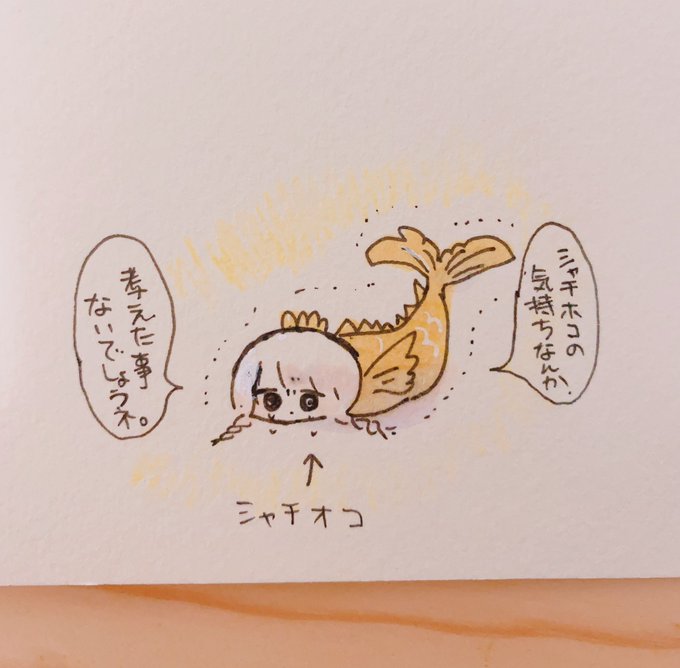 シャチホコの
気持ちなんか
考えた事
ないでしょうネ。
↑
シャチオコ